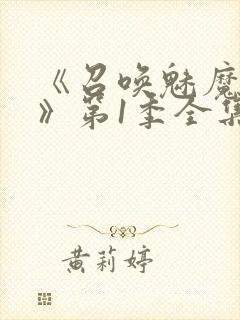 《召唤魅魔
》第1季全集
黄莉婷